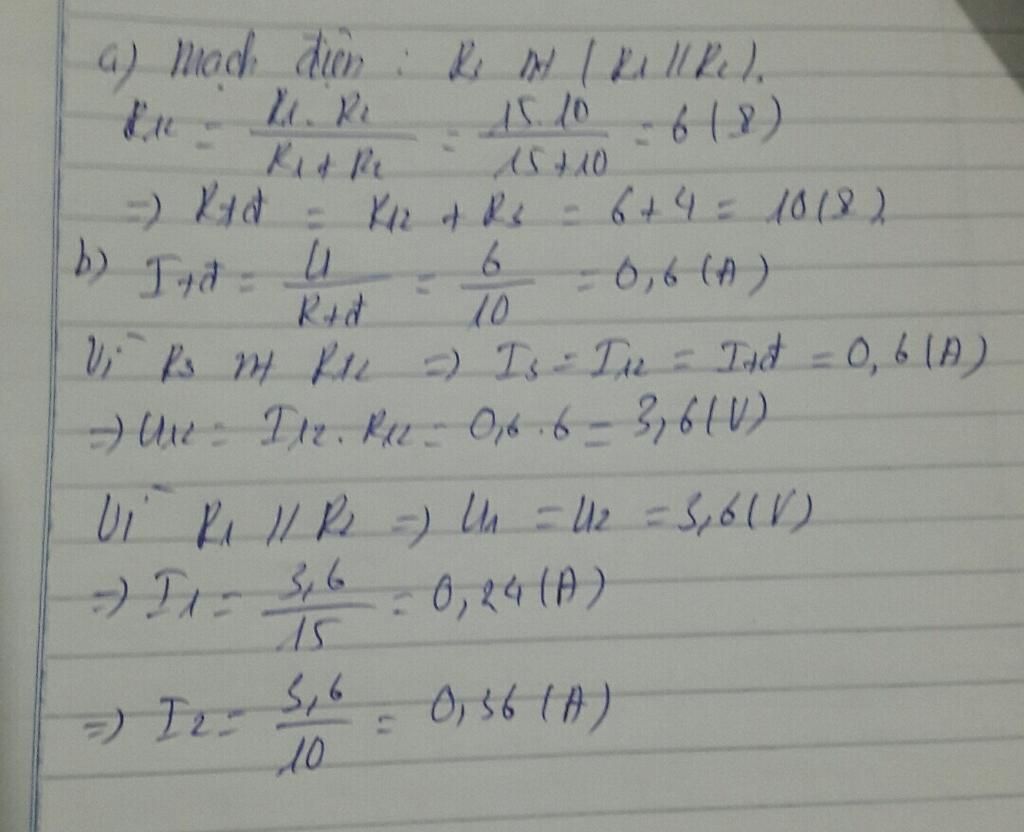 a) Mạch điện : R3 nt (R1 // R2).
R12 = R1. R2 / R1 + R2 = 15.10 / 15+10 = 6 (Ω)
=) Rtđ = R12 + R3 = 6+4 = 10(Ω)
b) Itđ = U / Rtđ = 6 / 10 = 0,6 (A)
Vì R3 nt R12 =) I3 = I12 = Itđ = 0,6 (A)
=) U12 = I12. R12 = 0,6 . 6 = 3,6 (V)
Vì R1 // R2 =) U1 = U2 = 3,6 (V)
=) I1 = 3,6 / 15 = 0,24 (A)
=) I2 = 3,6 / 10 = 0,36 (A)